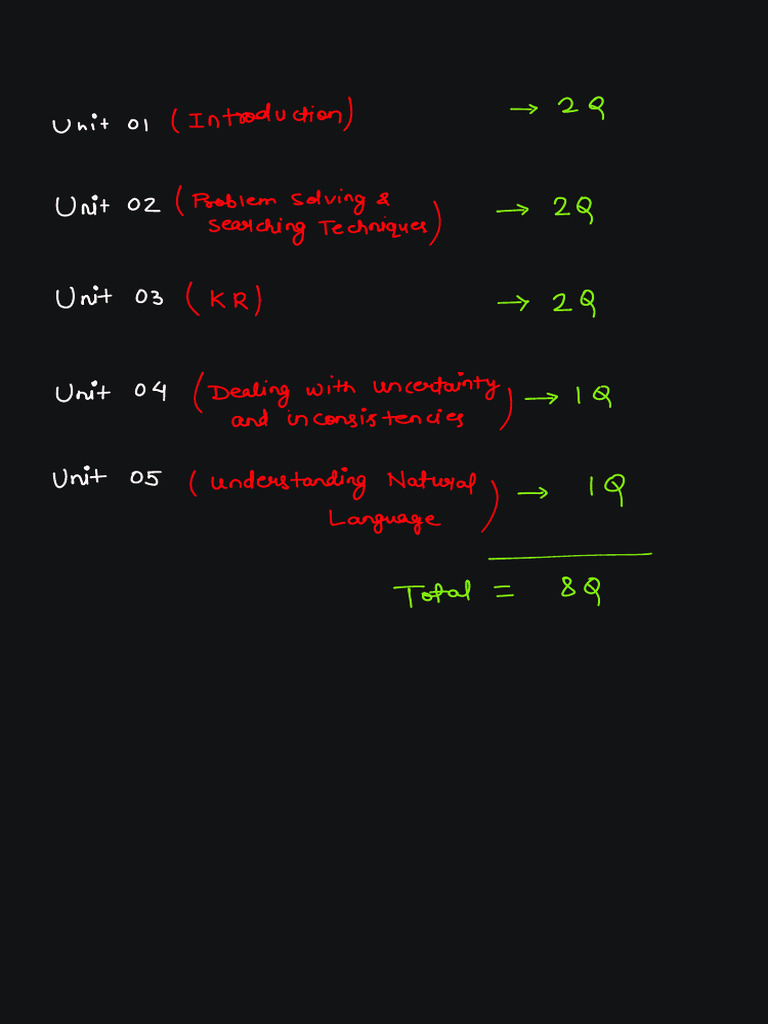 Unit 01 (Introduction) → 2Q
Unit 02 (Problem Solving &
Searching Techniques) → 2Q
Unit 03 (KR) → 2Q
Unit 04 (Dealing with uncertainty
and inconsistencies) → 1Q
Unit 05 (Understanding Natural
Language) → 1Q
Total = 8Q